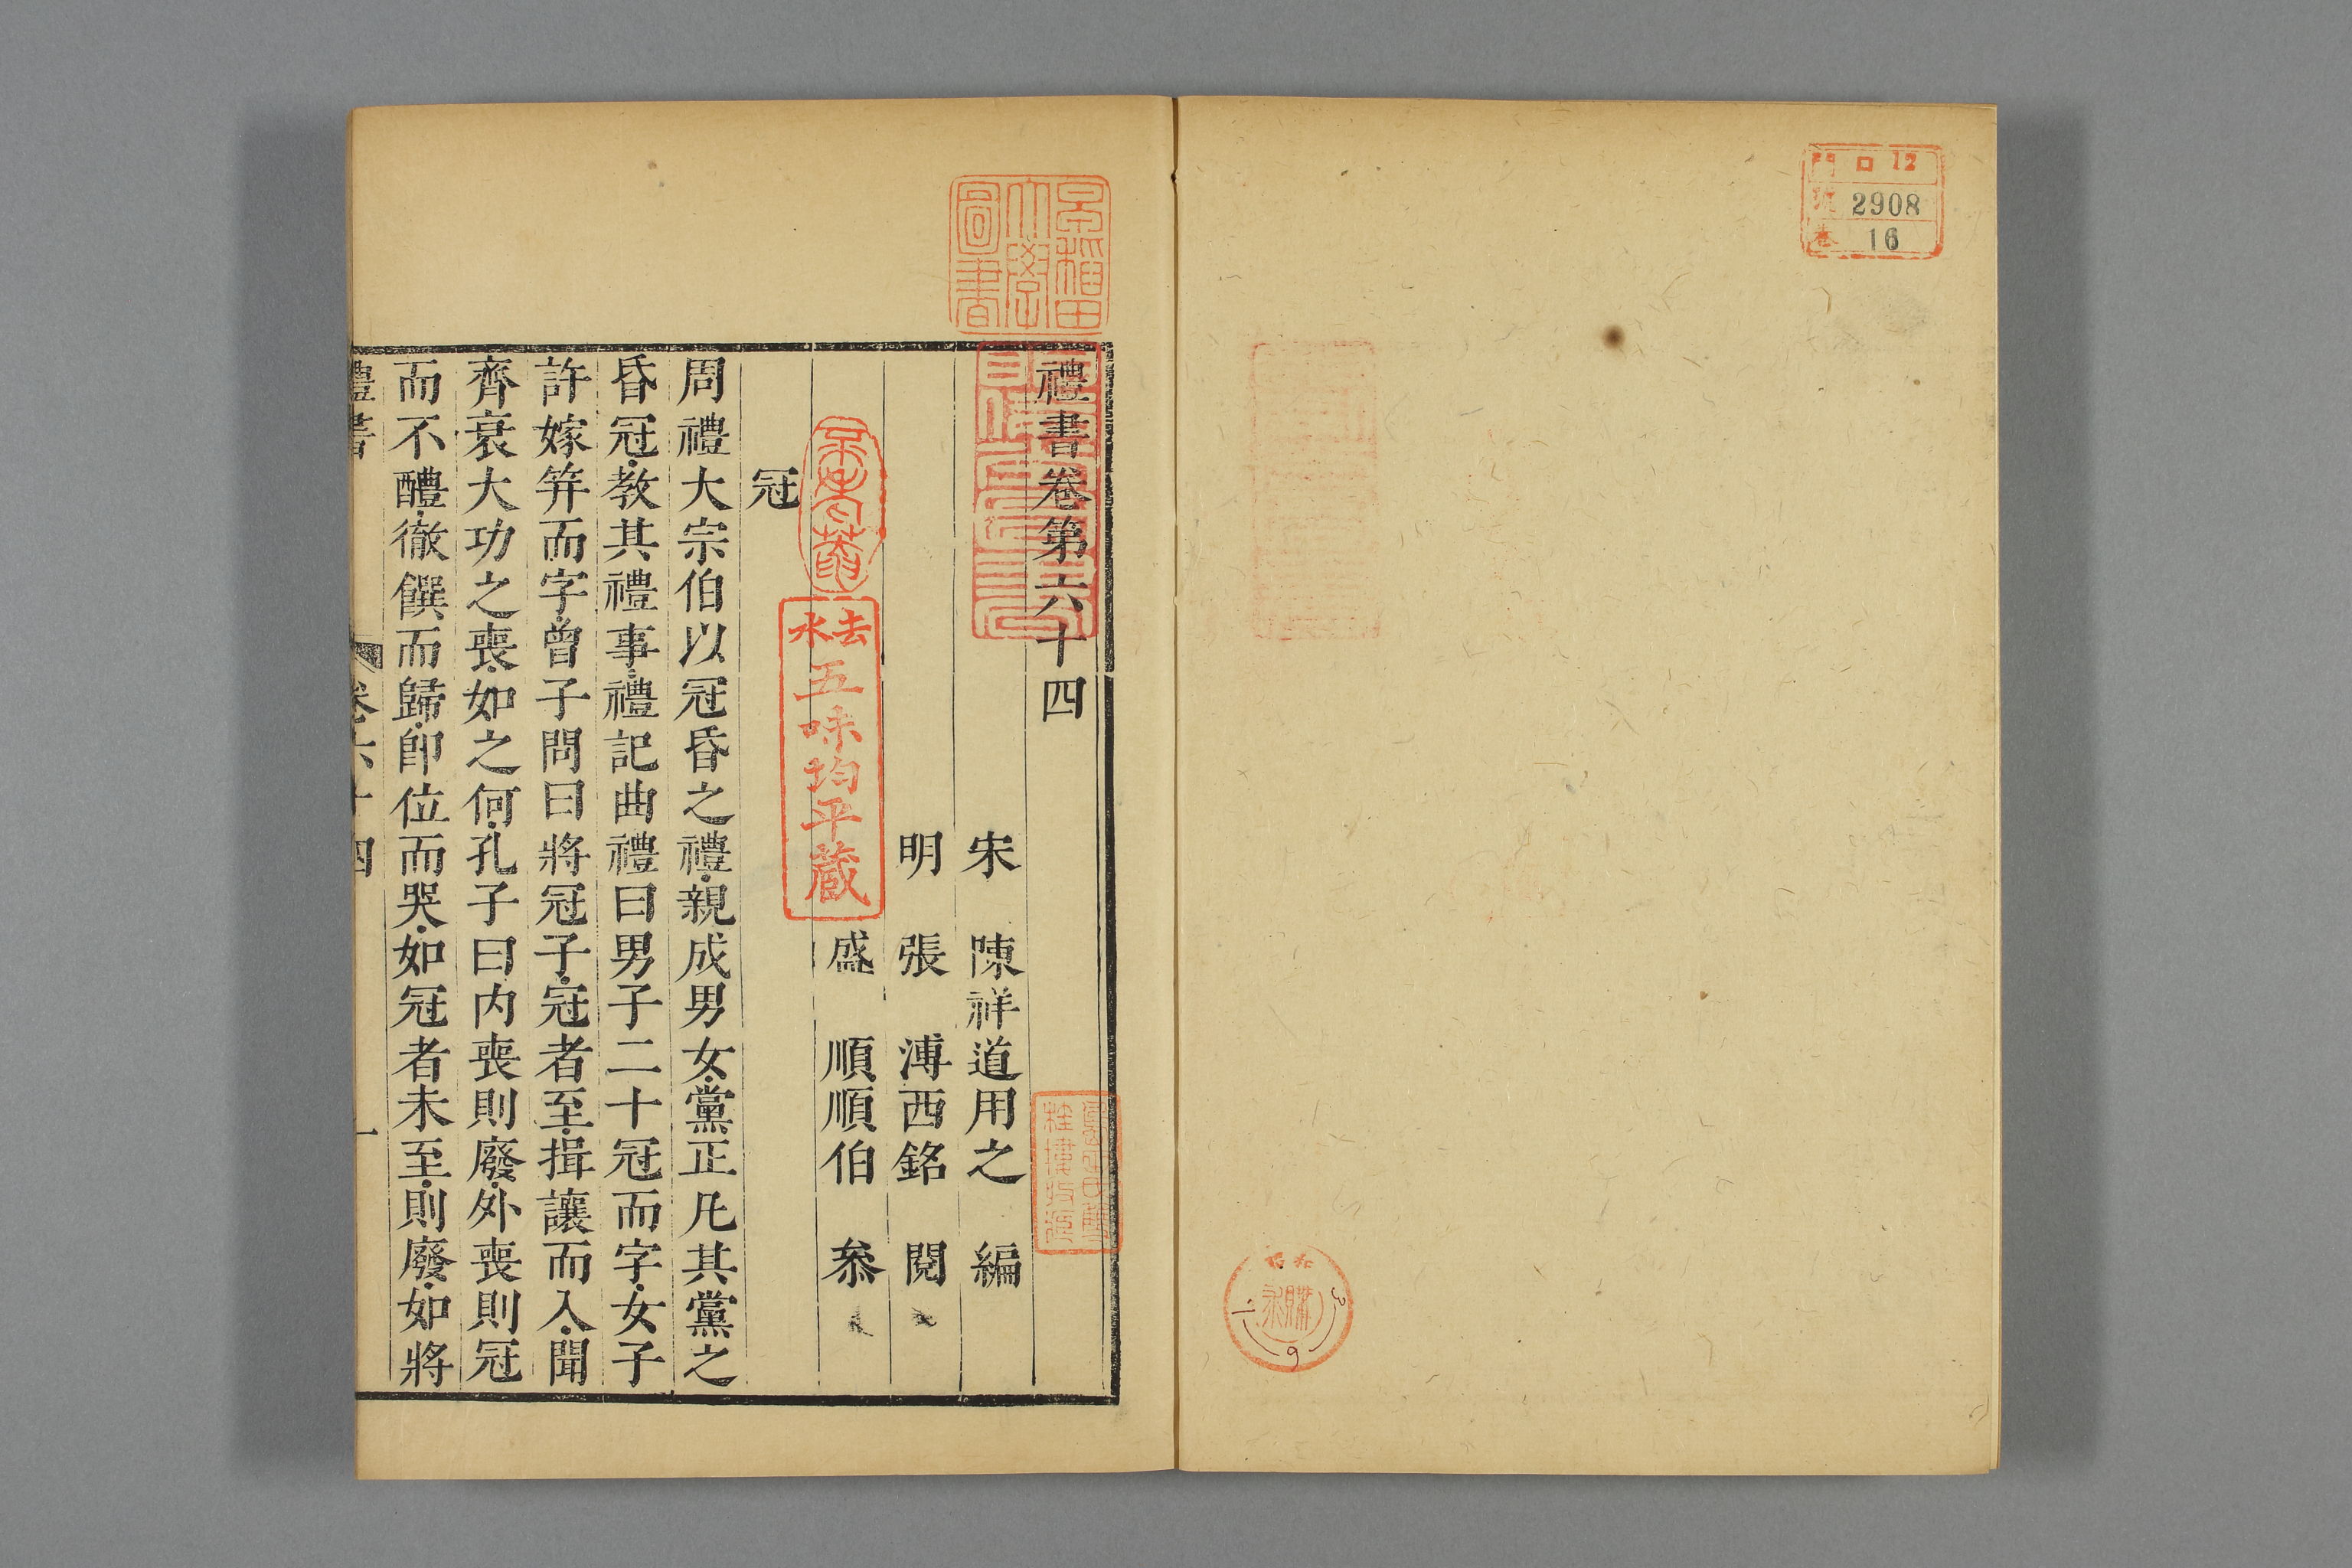 門 ロ 12
號 2908
巻 16
昭和
購求
3
6
早稲田
大學
圖書
禮書卷第六十四
宋 陳祥道用之 編
明 張 溥西銘 閱
盛 順順伯 叅
去水
五味均平蔵
冠
周禮大宗伯以冠昏之禮親成男女黨正凡其黨之
昏冠教其禮事禮記曲禮曰男子二十冠而字女子
許嫁笄而字曾子問曰將冠子冠者至揖讓而入聞
齊衰大功之喪如之何孔子曰内喪則廢外喪則冠
而不醴徹饌而歸卽位而哭如冠者未至則廢如將
禮書 卷六十四 一